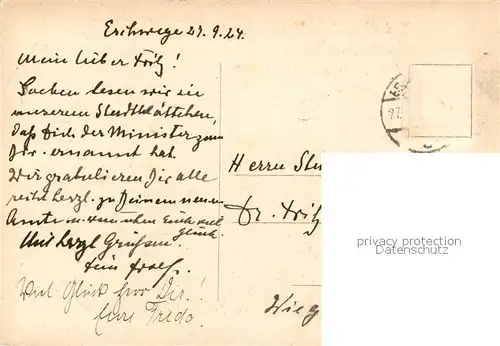 Eschwege 27.9.24.
Mein lieber Fritz!
Soeben lesen wir in
unserem Stadtblättchen,
daß Dich der Minister zum
Dir. ernannt hat.
Wir gratulieren Dir alle
recht herzl. zu Deinem neuen
Amte u. wünschen Euch viel
Glück.
Mit herzl Grüßen
Viel Glück Herr Dir.!
Eure Frieda.
Herrn
Dr. Fritz
privacy protection
Datenschutz